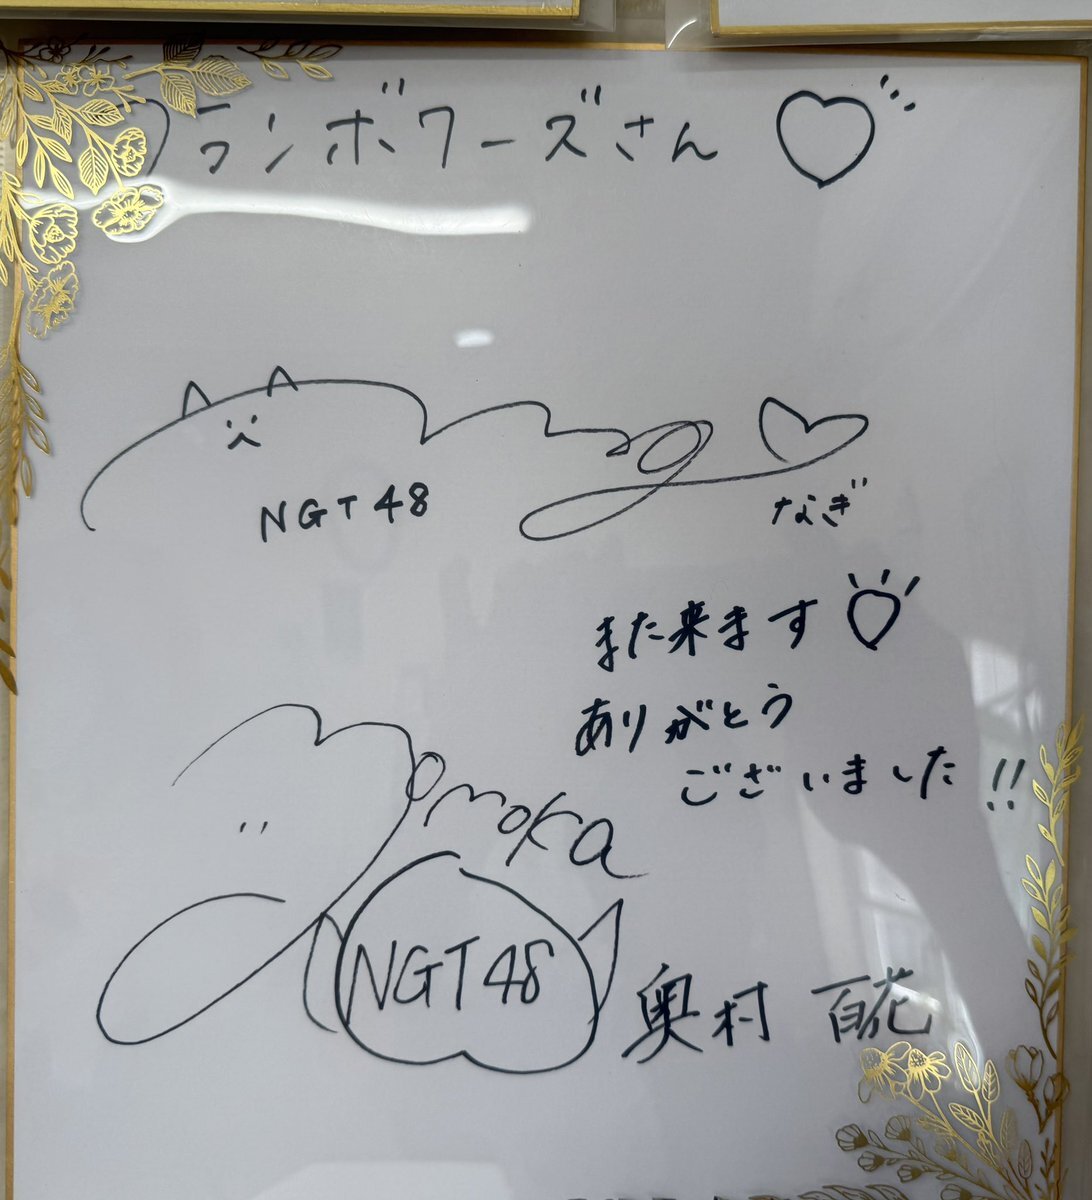 フランボワーズさん
NGT48
なぎ
また来ます
ありがとう
ございました!!
momoka
NGT48
奥村 百花